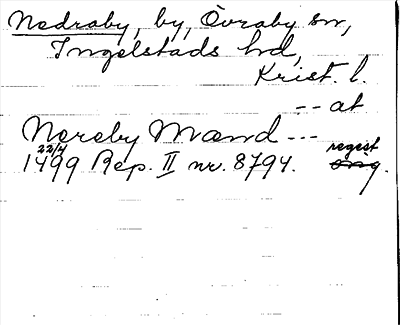 Nedraby, by, Övraby sn,
Ingelstads hd,
Krist. l.
-- at
Nereby Mænd ---
22/4 regist
1499 Rep. II nr. 8794. orig.